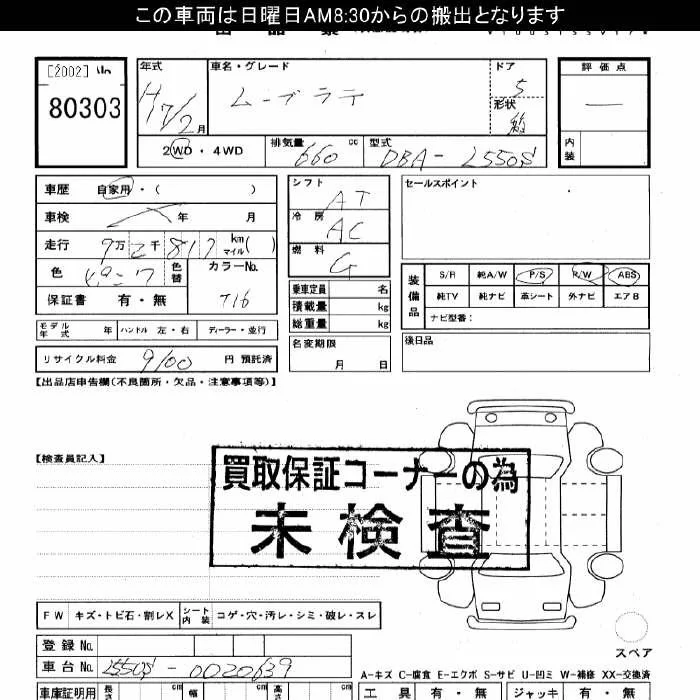 この車両は日曜日AM8:30からの搬出となります
[2002]
80303
年式
H17/2月
車名・グレード
ムーブラテ
ドア
5
形状
箱
評価点
内装
2WD・4WD
排気量
660 cc
型式
DBA- L550S
車歴 自家用・( )
車検 年 月
走行 9万2千817 km マイル( )
色 ピンク 色替
カラーNo.
T16
保証書 有・無
シフト
AT
冷房
AC
燃料
G
乗車定員 名
積載量 kg
総重量 kg
セールスポイント
装備品
S/R 純A/W P/S R/W ABS
純TV 純ナビ 革シート 外ナビ エアB
ナビ型番:
モデル年式 年 ハンドル 左・右 ディーラー・並行
名変期限
月 日
後日品
リサイクル料金 9100 円 預託済
【出品店申告欄(不良箇所・欠品・注意事項等)】
【検査員記入】
買取保証コーナーの為
未検査
FW キズ・トビ石・割レX シート内装 コゲ・穴・汚レ・シミ・破レ・スレ
スペア
登録 No.
車台 No. L550S - 0020639
A-キズ C-腐食 E-エクボ S-サビ U-凹ミ W-補修 XX-交換済
車庫証明用 長さ cm 幅 cm 高さ cm
工具 有・無 ジャッキ 有・無